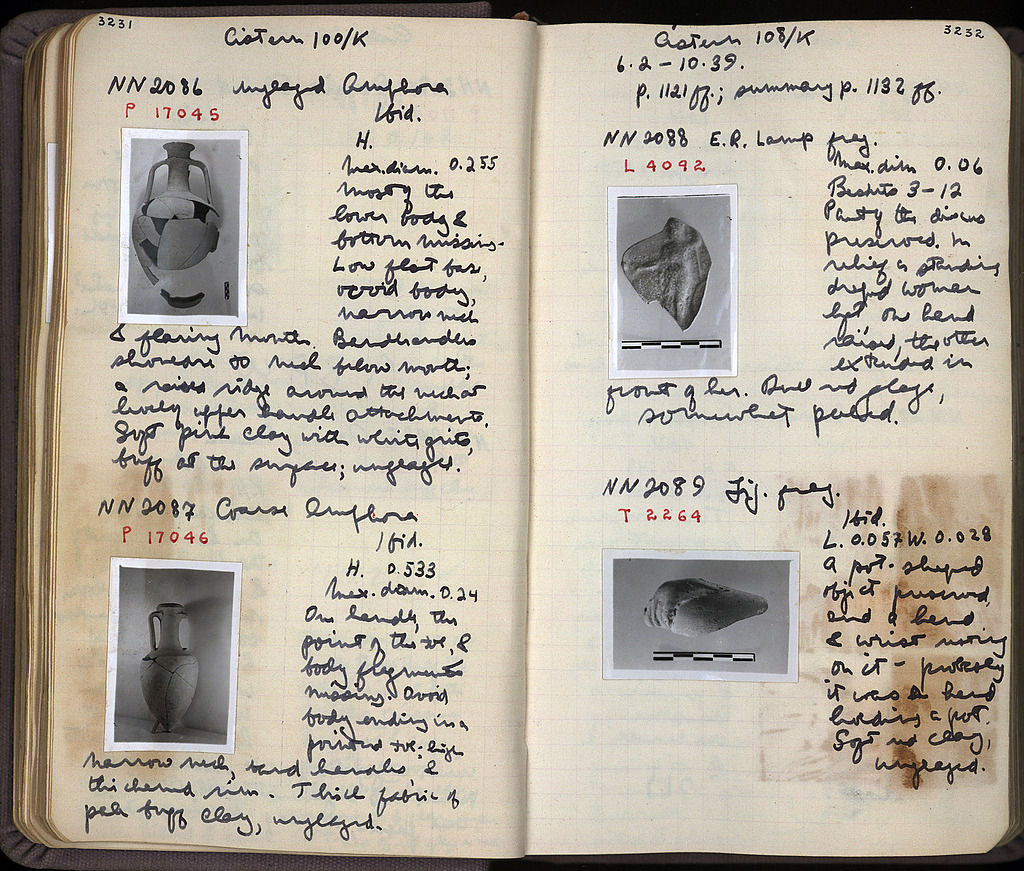 3231
Cistern 100/K
NN2086 unglazed Amphora
P 17045
Ibid.
H.
Max. diam. 0.255
Most of the
lower body &
bottom missing.
Low float base,
ovoid body,
narrow neck
& flaring mouth. Band handles
shoulder to neck below mouth;
a raised ridge around the neck at
level of upper handle attachments.
Soft pink clay with white grits,
buff at the surface; unglazed.
NN2087 Coarse Amphora
P 17046
Ibid.
H. 0.533
Max. diam. 0.24
One handle, the
point of the toe, &
body fragments
missing. Ovoid
body ending in a
pointed toe. high
narrow neck, band handles, &
thickened rim. Thick fabric of
pale buff clay, unglazed.
3232
Cistern 108/K
6.2-10.39.
p. 1121 ff.; summary p. 1132 ff.
NN2088 E.R. Lamp frag.
L 4092
Max. dim 0.06
3-12
Part of the discus
preserved. In
relief a standing
draped woman
left one hand
raised, the other
extended in
front of her. Dull red glaze,
somewhat peeled.
NN2089 Fig. frag.
T 2264
Ibid.
L. 0.057 W. 0.028
A pot-shaped
object preserved,
and a hand
& wrist resting
on it - probably
it was a hand
holding a pot.
Soft red clay,
unglazed.